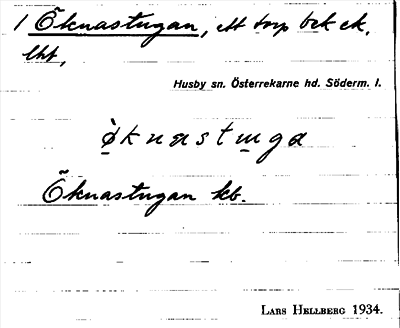 1 Öknastugan, ett torp bek ek.
lht,
Husby sn. Österrekarne hd. Söderm. l.
ø̀knastuga
Öknastugan kb.
LARS HELLBERG 1934.